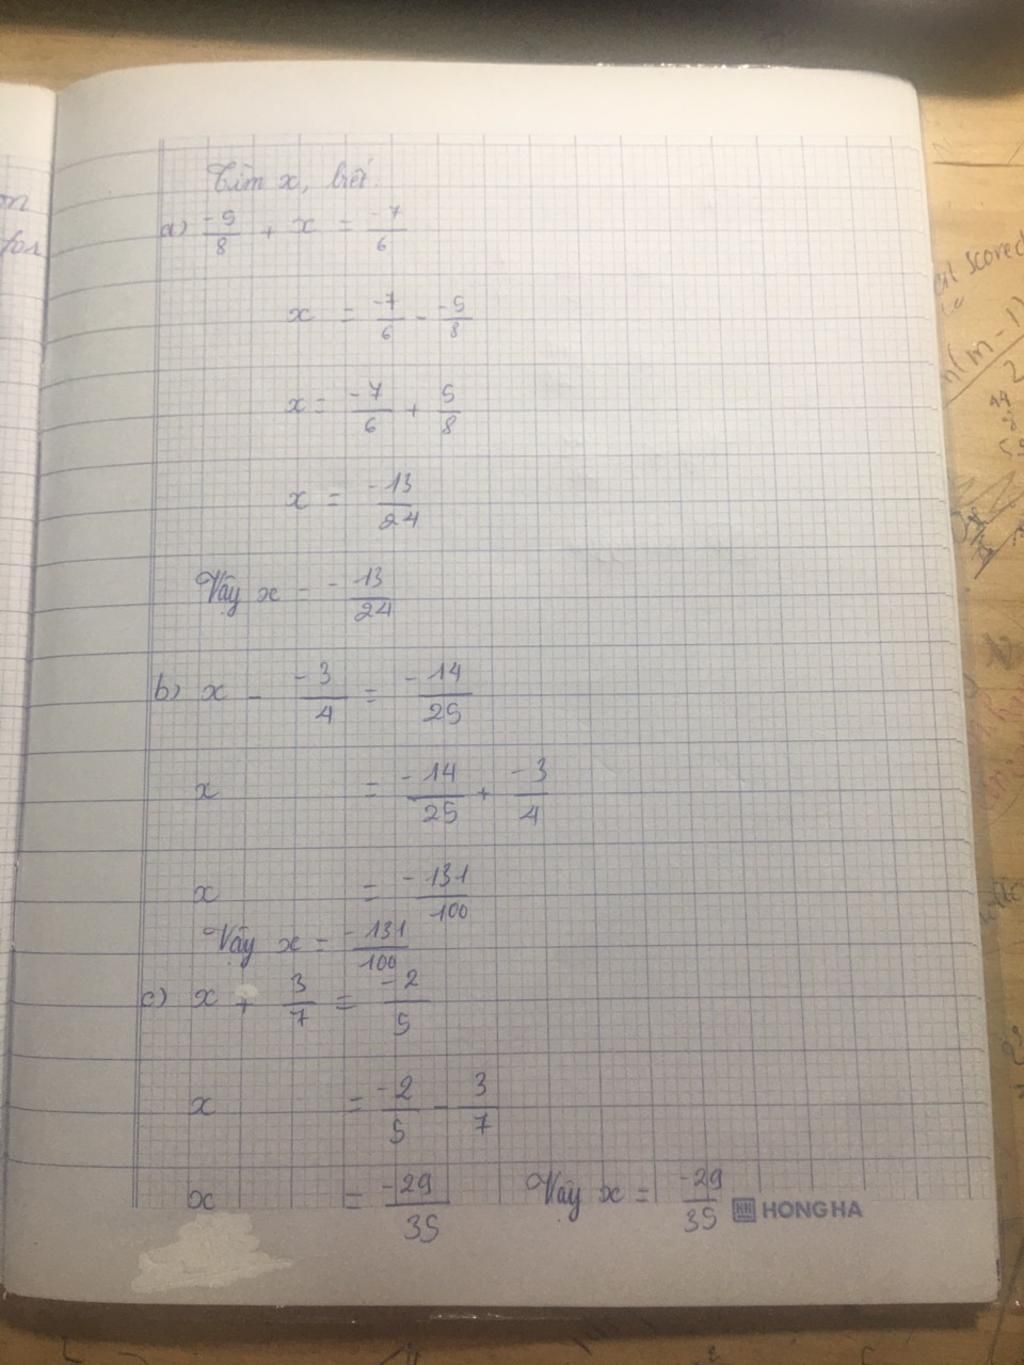 Tìm x, biết:
a) -5/8 + x = -7/6
x = -7/6 - -5/8
x = -7/6 + 5/8
x = -13/24
Vậy x = -13/24
b) x - -3/4 = -14/25
x = -14/25 + -3/4
x = -131/100
Vậy x = -131/100
c) x + 3/7 = -2/5
x = -2/5 - 3/7
x = -29/35 Vậy x = -29/35
HONG HA
scored
n(m-1)
2